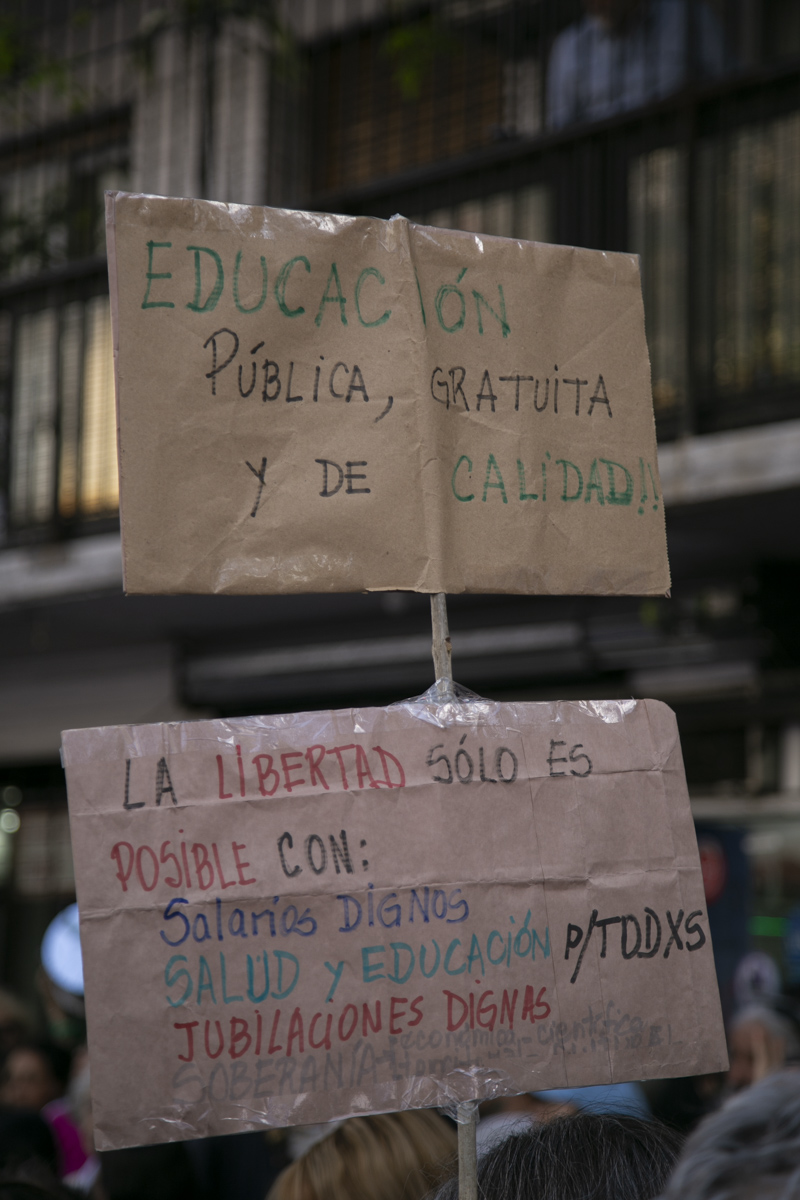 EDUCACIÓN
PÚBLICA, GRATUITA
Y DE CALIDAD!!
LA LIBERTAD SÓLO ES
POSIBLE CON:
Salarios DIGNOS
SALUD y EDUCACIÓN P/TODXS
JUBILACIONES DIGNAS
SOBERANÍA económica - científica